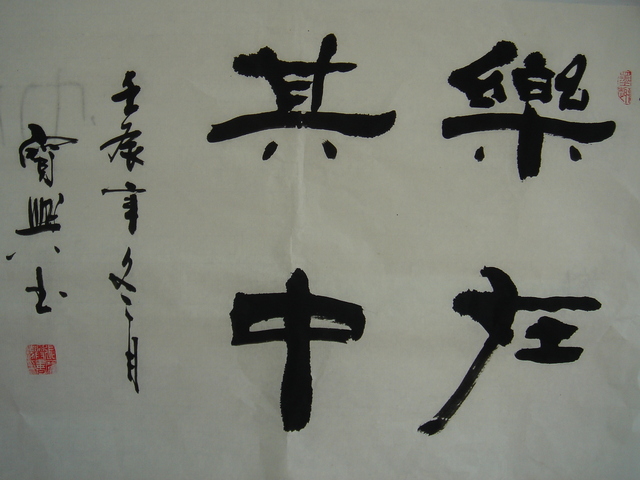 樂在
其中
壬辰年冬月
寶興书